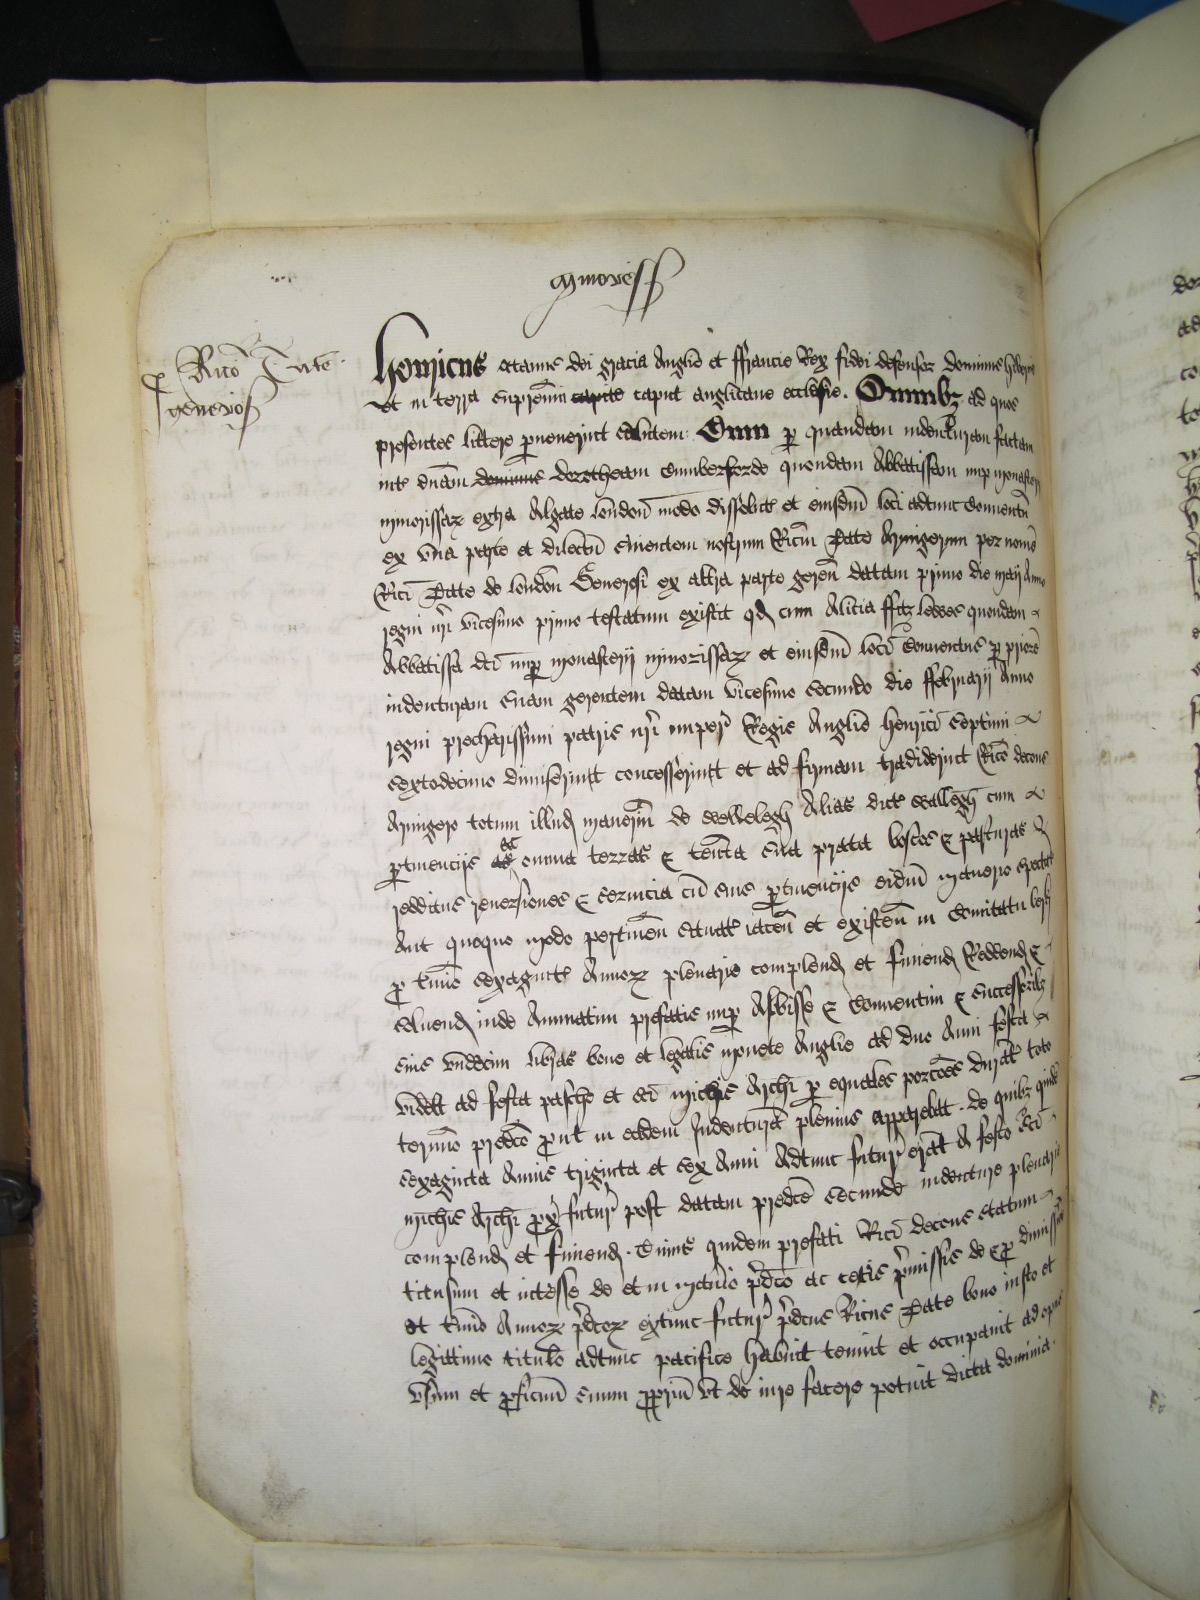 mynoress
p Rico Tate
generos
Henricus octauus dei gracia Anglie et ffrancie Rex fidei defensor dominus hibernie
et in terra supremu capite caput anglicane ecclesie. Omnibz ad quos
presentes littere peruenerint salutem Cum p quandam indenturam factam
int dnam dominus dorotheam Cumberforde quondam Abbatissam nup monasterij
minorissar extra Algate london modo dissolut et eiusdm loci adtunc Conuentu
ex vna parte et dilectu seruientem nostrum Ricm Tate Armigerum per nome
Rici Tate de london Generosi ex altera parte geren datam primo die maij Anno
regni nri vicesimo primo testatum existit qd cum Alicia ffitz lewes quondam
Abbatissa dci nup monasterij minorissar et eiusdm loci Conuentus p priore
indenturam suam gerentem datam vicesimo secundo die ffebruarij Anno
regni precharissimi patris nri nuper Regis Anglie henrici Septimi
sextodecimo dimiserunt concesserunt et ad firmam tradiderunt Rico decons
Armigero totum illud manerm de Wellelegh Alias dict Wallegh cum
ptinencijs ac omnia terras & tenta sua prata boscos & pasturas
redditus reuersiones & seruicia cu suis ptinencijs eidm manerio spectat
Aut quoquo modo pertinen situat iacen et existen in Comitatu
p tmio sexagint Annor plenarie complend et finiend Reddend &
soluend inde Annuatim prefatis nup Abbisse & Conuentui & successoribz
suis vndecim libras bone et legalis monete Anglie ad duo Anni festa
videlt ad festa pasche et sci michis Archi p equales porcoes durat toto
termino predco put in eadem Indentura plenius apparebat. de quibz quid
sexaginta Annis triginta et sex Anni Adtunc futur erat A festo sci
michis Archi prox futur post datam predce secunde indenture plenarie
complend et finiend. Cuius quidem prefati Rici decons statum
titulum et intesse de et in manio pdco ac cetis pmissis de & p dimissione
et tmio Annor pdcor extunc futur pdcus Ricus Tate bono iusto et
legittimo titulo adtunc pacifice habuit tenuit et occupauit ad opus
vsum et pficuu suum ppriu vt de iure facere potuit dicta domina